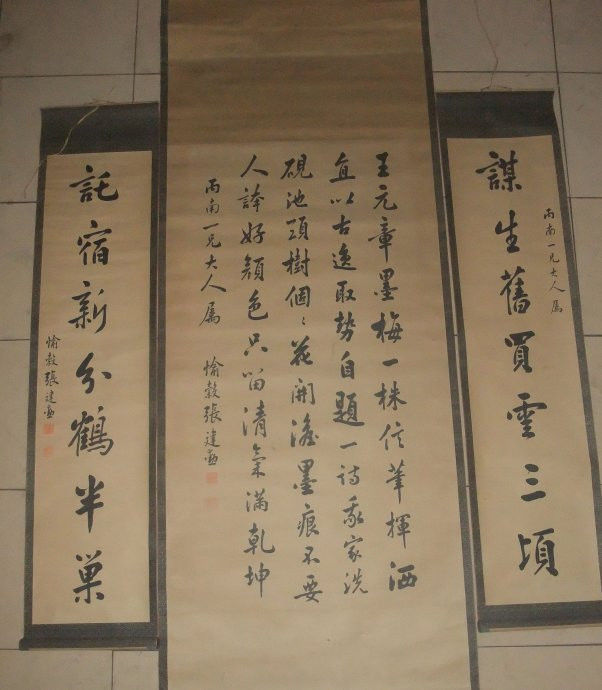 謀生舊買雲三頃
丙南一兄大人属
王元章墨梅一株信筆揮洒
直以古逸取勢自題一詩我家洗
硯池頭樹個〻花開澹墨痕不要
人誇好顔色只留清氣滿乾坤
丙南一兄大人属
愉穀張建勳
託宿新分鶴半巢
愉穀張建勳